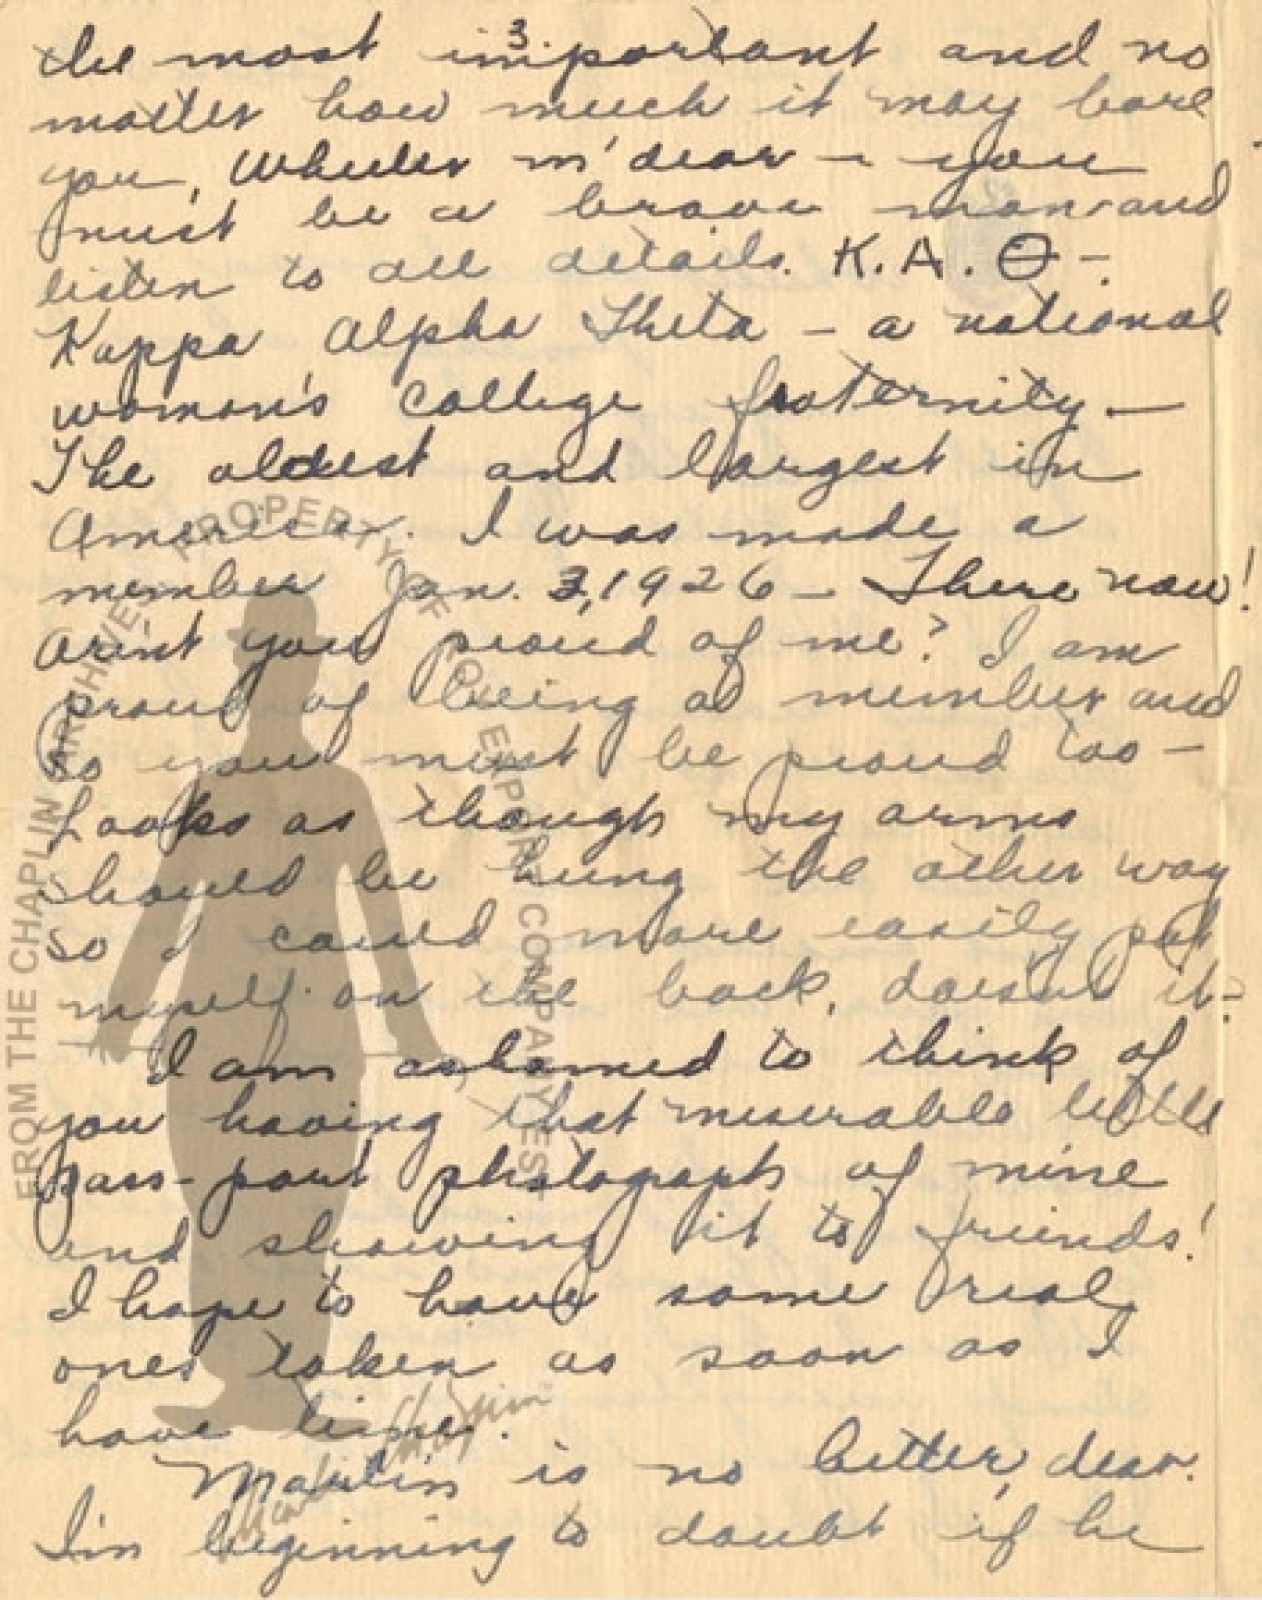 3.
the most important and no
matter how much it may bore
you, Wheeler m'dear — you
must be a brave man and
listen to all details. K. A. Θ —
Kappa Alpha Theta — a national
woman's college fraternity —
The oldest and largest in
America. I was made a
member Jan. 3, 1926 — There now!
Arin't you proud of me? I am
proud of being a member and
so you must be proud too —
Looks as though my arms
should be hung the other way
so I could more easily pat
myself on the back, doesn't it?
I am ashamed to think of
you having that miserable little
pass-port photograph of mine
and showing it to friends!
I hope to have some real
ones taken as soon as I
have time.
Martin is no better, dear.
I'm beginning to doubt if he
FROM THE CHAPLIN ARCHIVE PROPERTY OF ROY EXPORT COMPANY EST
Charlie Chaplin